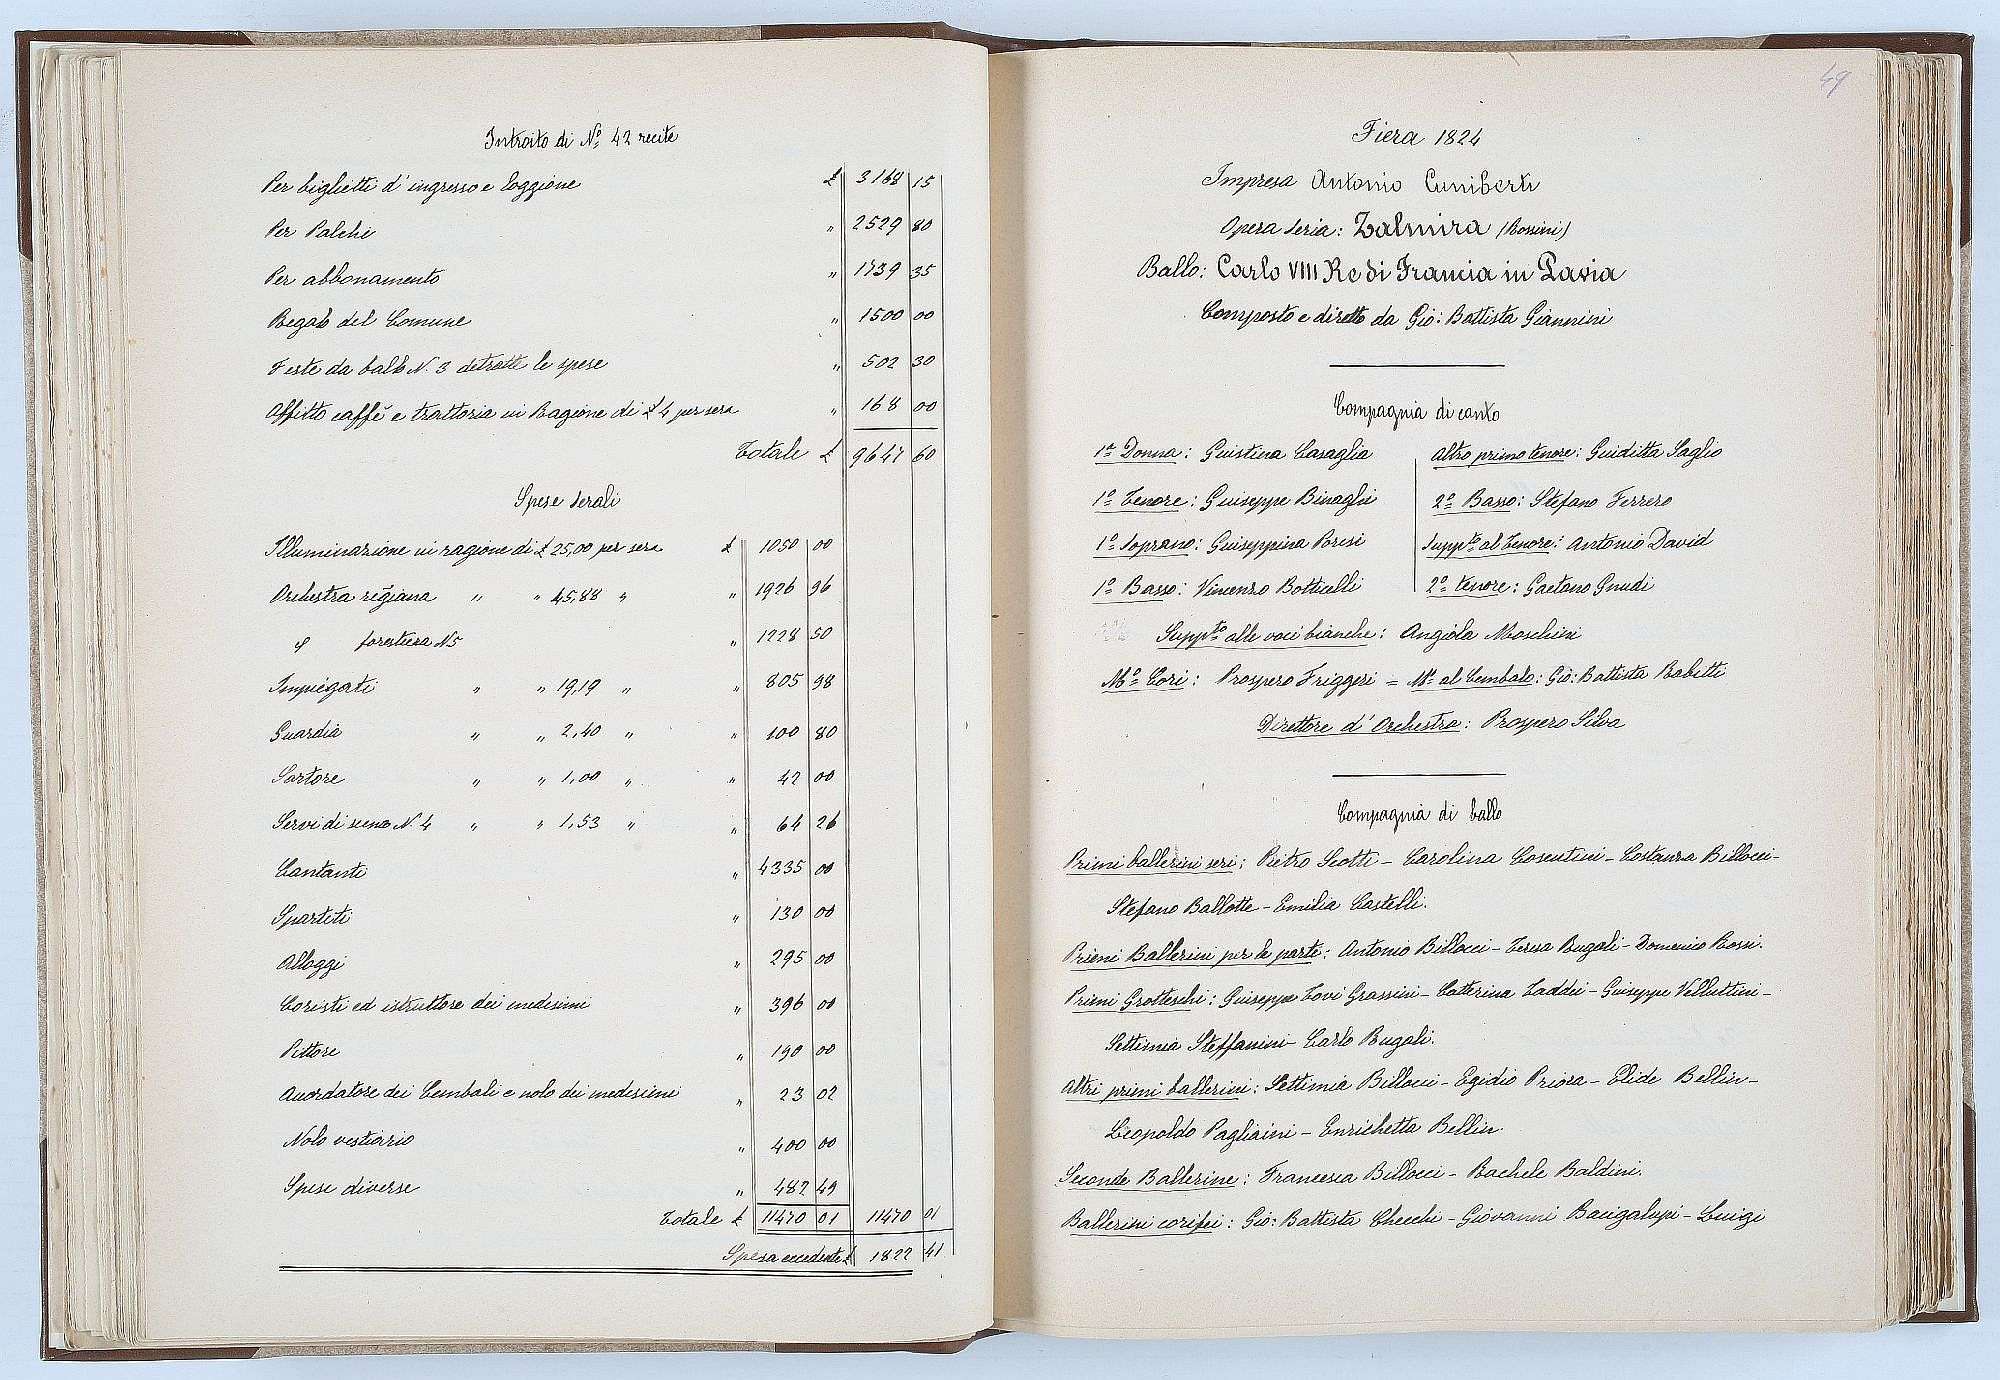 Introito di Nº 42 recite
Per biglietti d'ingresso e loggione £ 3168 15
Per Palchi " 2529 80
Per abbonamento " 1739 35
Regalo del Comune " 1500 00
Feste da ballo N. 3 detratte le spese " 502 30
Affitto caffè e trattoria in Ragione di £ 4 per sera " 168 00
Totale £ 9647 60
Spese Serali
Illuminazione in ragione di £ 25,00 per sera £ 1050 00
Orchestra regiana " " 45,88 " " 1926 96
" forestiera N5 " 1228 50
Impiegati " " 19,19 " " 805 98
Guardia " " 2,40 " " 100 80
Sartore " " 1,00 " " 42 00
Servi di scena N. 4 " " 1,53 " " 64 26
Cantanti " 4335 00
Spartiti " 130 00
Alloggi " 295 00
Coristi ed istruttore dei medesimi " 396 00
Pittore " 190 00
Accordatore dei Cembali e nolo dei medesimi " 23 02
Nolo vestiario " 400 00
Spese diverse " 482 49
Totale £ 11470 01 11470 01
Spesa eccedente £ 1822 41
49
Fiera 1824
Impresa Antonio Cuniberti
Opera Seria: Zalmira (Rossini)
Ballo: Carlo VIII Re di Francia in Pavia
Composto e diretto da Gio: Battista Giannini
Compagnia di canto
1ª Donna: Giustina Casaglia
1º Tenore: Giuseppe Binaghi
1º Soprano: Giuseppina Poresi
1º Basso: Vincenzo Botticelli
Altro primo tenore: Guiditta Saglio
2º Basso: Stefano Ferrero
Suppto al Tenore: Antonio David
2º tenore: Gaetano Gnudi
Suppto alle voci bianche: Angiola Moschini
Mº Cori: Prospero Friggeri = Mº al Cembalo: Gio: Battista Rabitti
Direttore d'Orchestra: Prospero Silva
Compagnia di ballo
Primi ballerini seri: Pietro Scotti - Carolina Cosentini - Costanza Billocci -
Stefano Ballotte - Emilia Castelli.
Primi Ballerini per le parte: Antonio Billocci - Teresa Bugali - Domenico Rossi.
Primi Grotteschi: Giuseppe Tovi Grassini - Catterina Taddei - Giuseppe Velluttini -
Settimia Steffanini - Carlo Bugali.
Altri primi ballerini: Settimia Billocci - Egidio Priora - Elide Bellin -
Leopoldo Pagliaini - Enrichetta Bellin.
Seconde Ballerine: Francesca Billocci - Rachele Baldini.
Ballerini corifei: Gio: Battista Checchi - Giovanni Bacigalupi - Luigi